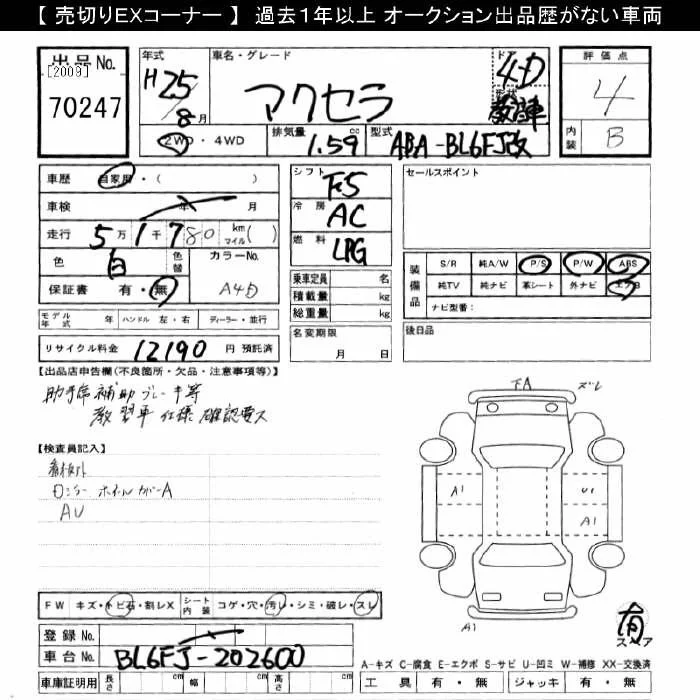 【 売切りEXコーナー 】 過去1年以上 オークション出品歴がない車両
出品No.
[2009]
70247
年式
H25/8月
車名・グレード
マクセラ
ドア
4D
形状
教習車
評価点
4
内装
B
2WD・4WD
排気量
1.59
cc
型式
ABA-BL6FJ改
車歴
自家用・( )
車検 年 月
走行 5万1千780 km マイル( )
色 白 色替 カラーNo.
保証書 有・無 A4D
モデル年式 ハンドル 左・右 ディーラー・並行
リサイクル料金 12190 円 預託済
シフト F5
冷房 AC
燃料 LPG
乗車定員 名
積載量 kg
総重量 kg
名変期限
月 日
セールスポイント
装備品
S/R 純A/W P/S P/W ABS
純TV 純ナビ 革シート 外ナビ エアB
ナビ型番:
後日品
【出品店申告欄(不良箇所・欠品・注意事項等)】
助手席補助ブレーキ等
教習車仕様 確認要ス
【検査員記入】
ホイールカバーA
AU
FA
ズレ
A1
U1
A1
A1
有
スペア
FW キズ・トビ石・割レX シート内装 コゲ・穴・汚レ・シミ・破レ・スレ
登録No.
車台No. BL6FJ-202600
車庫証明用 長さ cm 幅 cm 高さ cm
A-キズ C-腐食 E-エクボ S-サビ U-凹ミ W-補修 XX-交換済
工具 有・無 ジャッキ 有・無